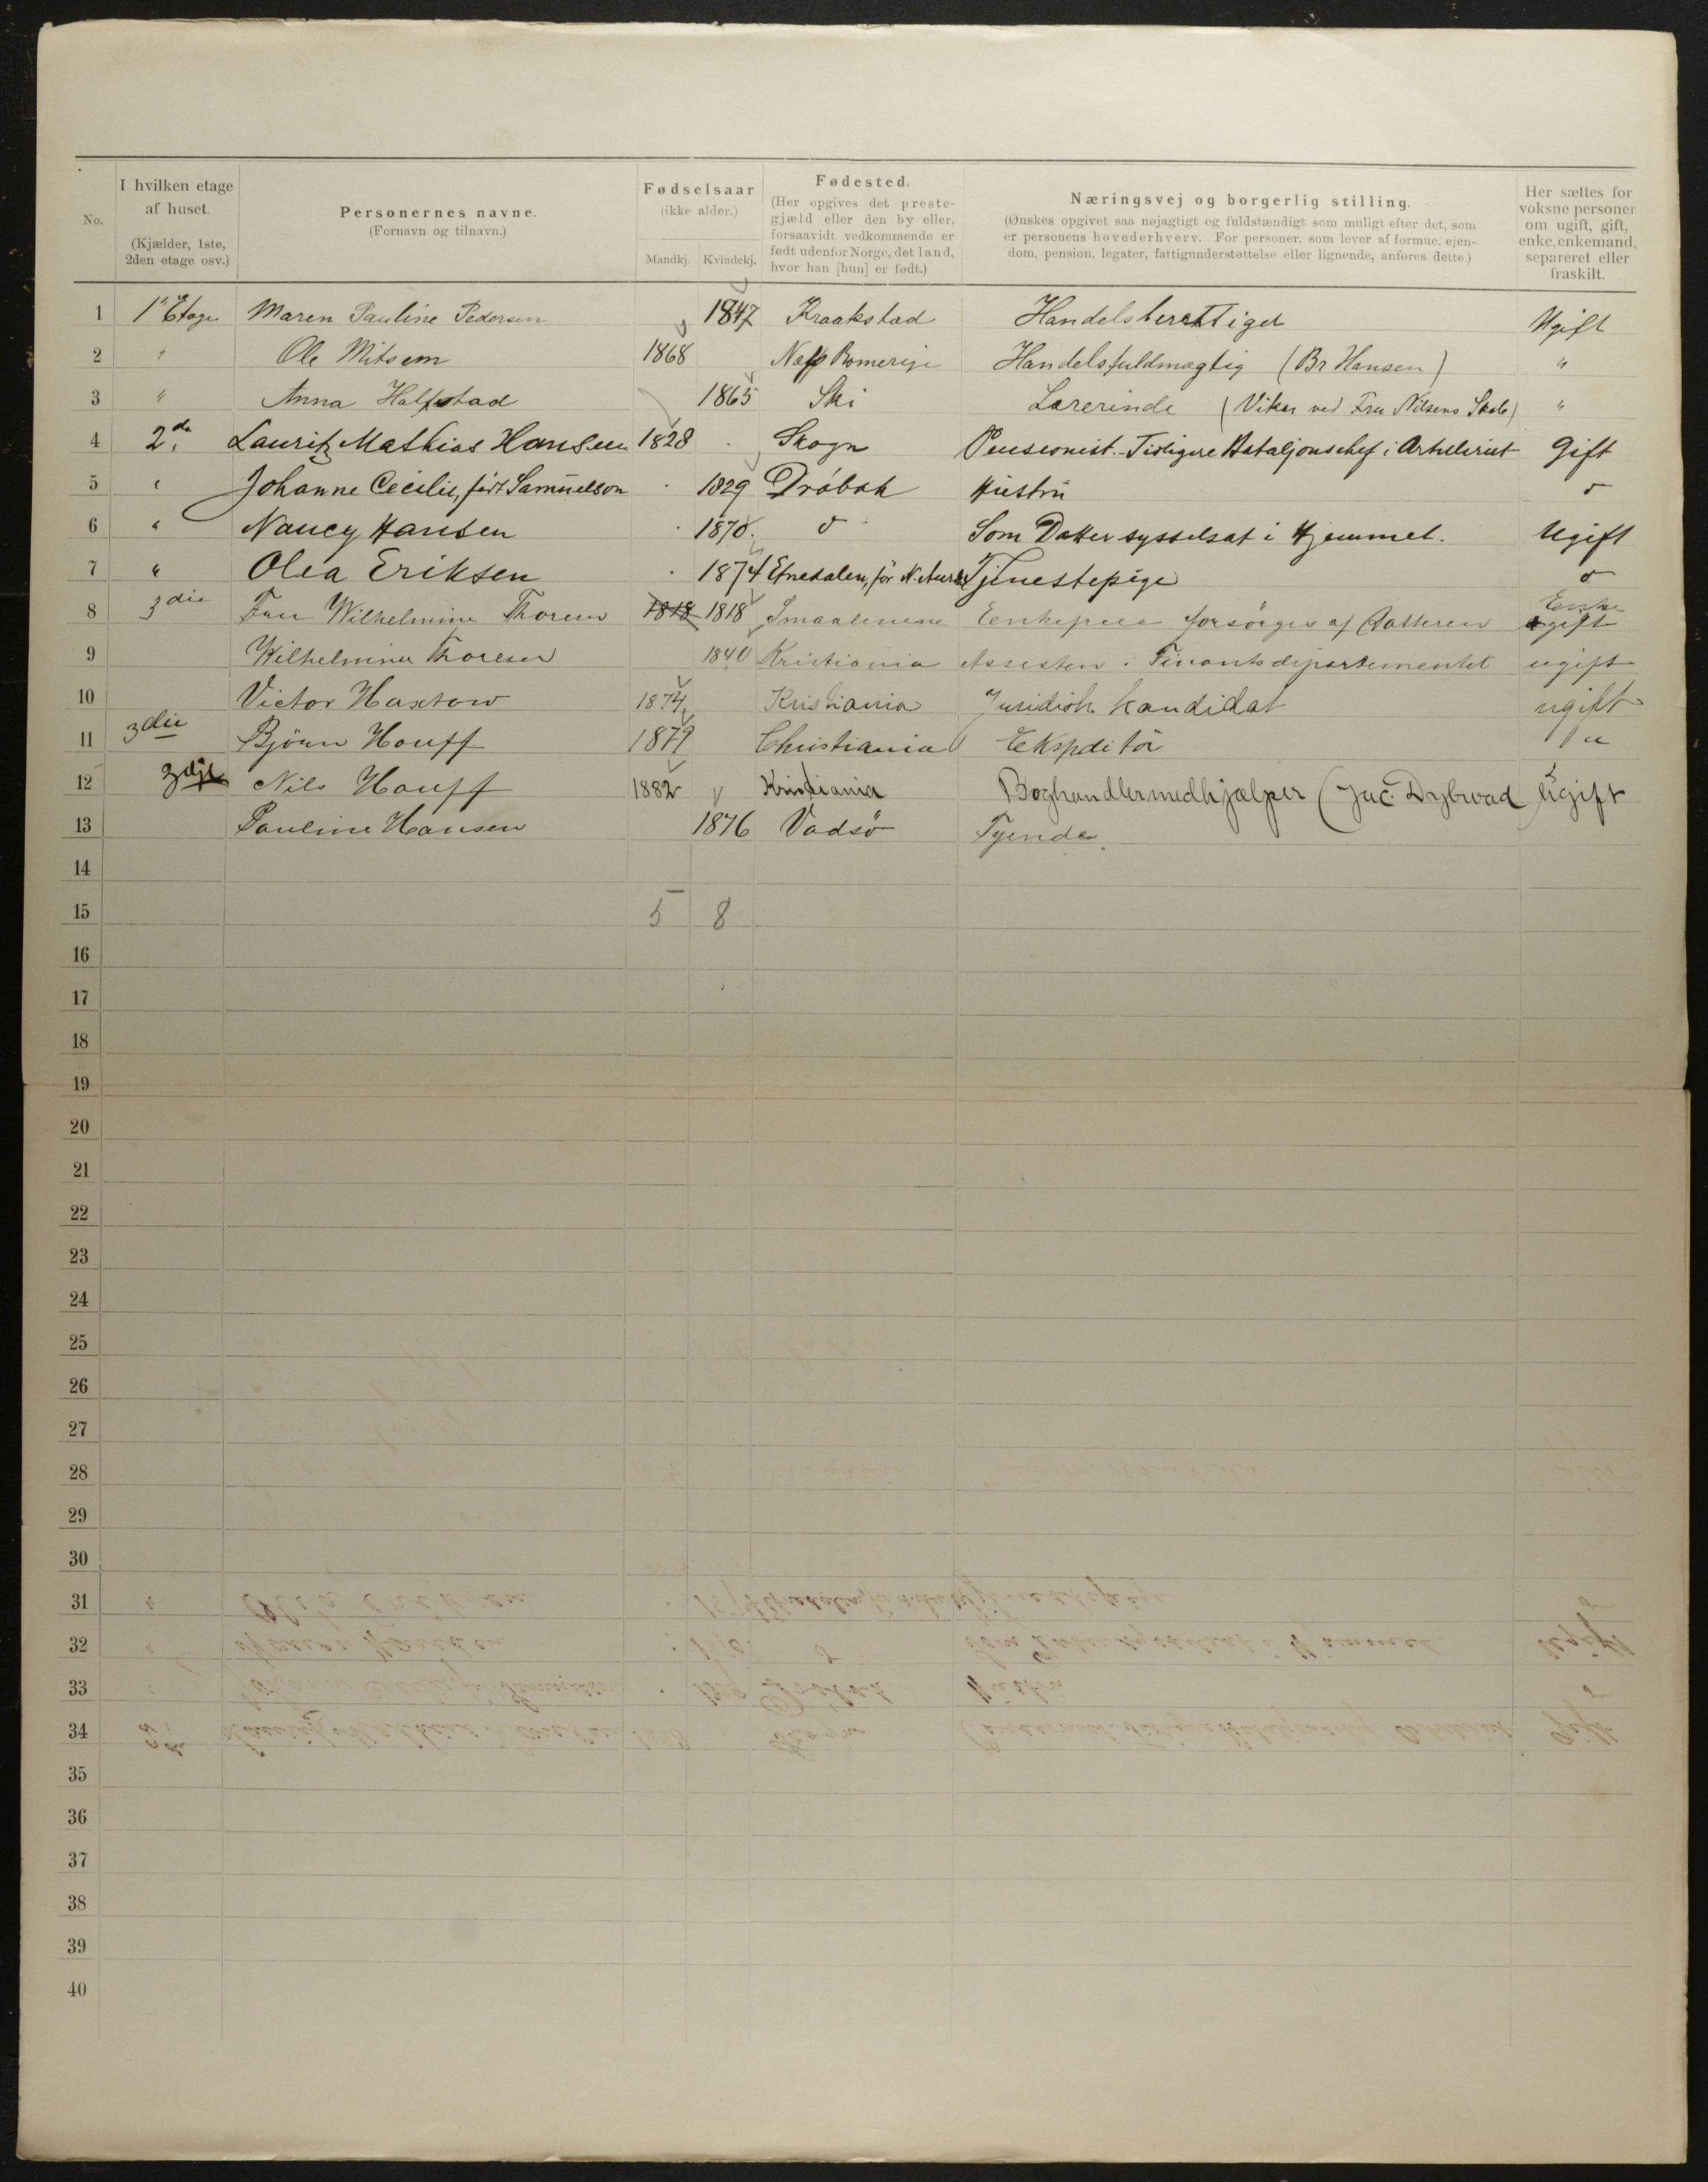 No. | I hvilken etage af huset. (Kjælder, 1ste, 2den etage osv.) | Personernes navne. (Fornavn og tilnavn.) | Fødselsaar (ikke alder.) Mandkj. Kvindekj. | Fødested. (Her opgives det prestegjæld eller den by eller, forsaavidt vedkommende er født udenfor Norge, det land, hvor han [hun] er født.) | Næringsvej og borgerlig stilling. (Ønskes opgivet saa nøjagtigt og fuldstændigt som muligt efter det, som er personens hovederhverv. For personer, som lever af formue, ejendom, pension, legater, fattigunderstøttelse eller lignende, anføres dette.) | Her sættes for voksne personer om ugift, gift, enke, enkemand, separeret eller fraskilt.
1 1" Etage Maren Pauline Pedersen 1847 Kraakstad Handelsberettiget Ugift
2 " Ole Mitsem 1868 Næs Romerige Handelsfuldmægtig (Br Hansen) "
3 " Anna Halfstad 1865 Ski Lærerinde (Vikar ved Fru Nilsens Skole) "
4 2.den Lauritz Mathias Hansen 1828 Skogn Pensionist. Tidligere Bataljonschef i Artilleriet Gift
5 " Johanne Cecilie, født Samuelson 1829 Drøbak Hustru do
6 " Nancy Hansen 1870. do Som Datter sysselsat i Hjemmet. Ugift
7 " Olea Eriksen 1874 Etnedalen, før N. Aurdal Tjenestepige do
8 3die Fru Wilhelmine Thoresen 1818 1818 Smaalenene Enkefrue forsörges af Datteren Enke ugift
9 Wilhelmine Thoresen 1840 Kristiania Assistent i Finantsdepartementet ugift
10 Victor Haxtow 1874 Kristiania Juridisk kandidat ugift
11 3die Björn Houff 1879 Christiania Ekspditör "
12 3dje Nils Houff 1882 Kristiania Boghandlermedhjælper (Jac. Dybwad) ugift
13 Pauline Hansen 1876 Vadsö Tyende.
14
15 5 8
16
17
18
19
20
21
22
23
24
25
26
27
28
29
30
31
32
33
34
35
36
37
38
39
40